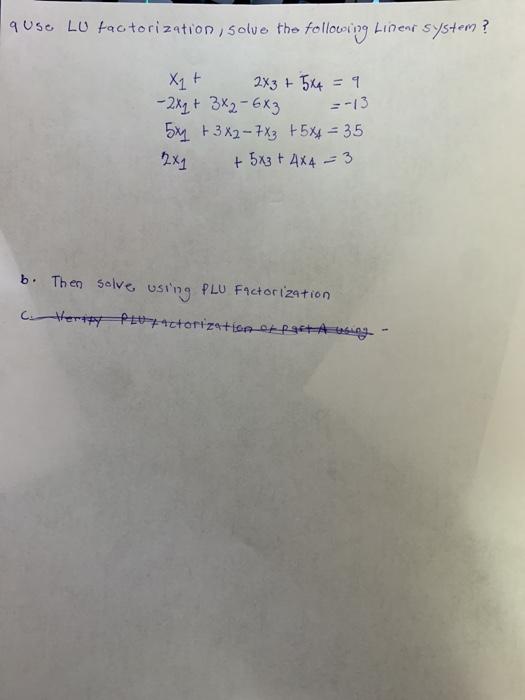 a Use LU factorization, solve the following Linear system?
x1 + 2x3 + 5x4 = 9
-2x1 + 3x2 - 6x3 = -13
5x1 + 3x2 - 7x3 + 5x4 = 35
2x1 + 5x3 + 4x4 = 3
b. Then solve using PLU Factorization
C. Verify PLU factorization of Part A using -